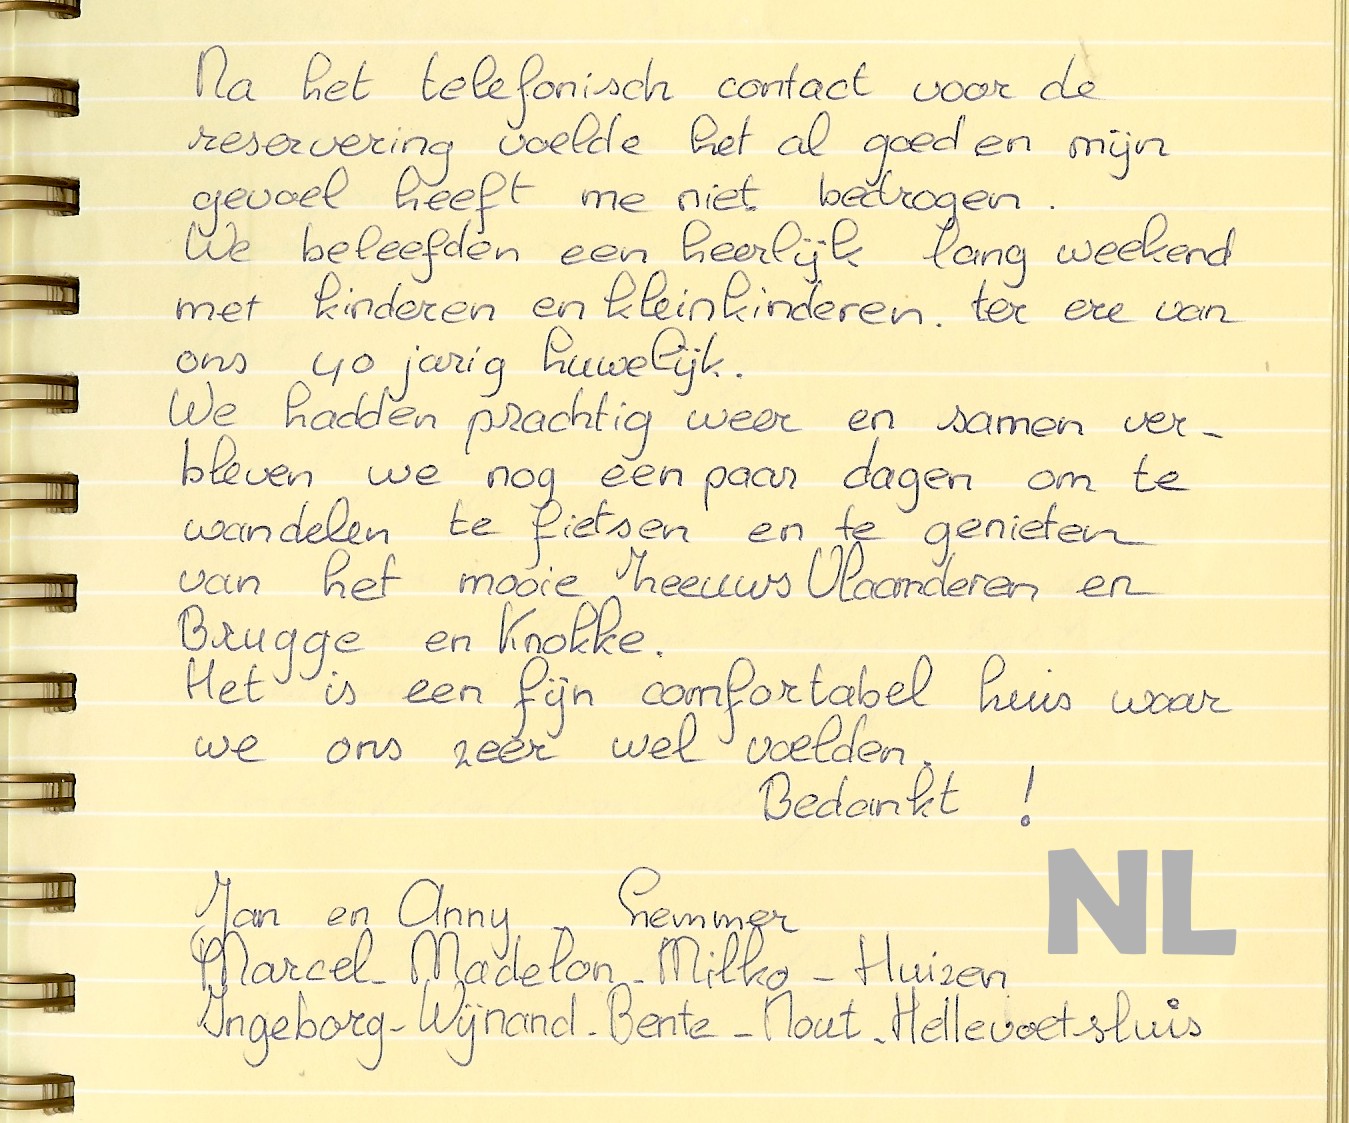 Na het telefonisch contact voor de
reservering voelde het al goed en mijn
gevoel heeft me niet bedrogen.
We beleefden een heerlijk lang weekend
met kinderen en kleinkinderen. ter ere van
ons 40 jarig huwelijk.
We hadden prachtig weer en samen ver-
bleven we nog een paar dagen om te
wandelen te fietsen en te genieten
van het mooie Zeeuws Vlaanderen en
Brugge en Knokke.
Het is een fijn comfortabel huis waar
we ons zeer wel voelden.
Bedankt !
Jan en Anny - Lemmer
Marcel - Madelon - Milko - Huizen
Ingeborg - Wijnand - Bente - Nout - Hellevoetsluis
NL